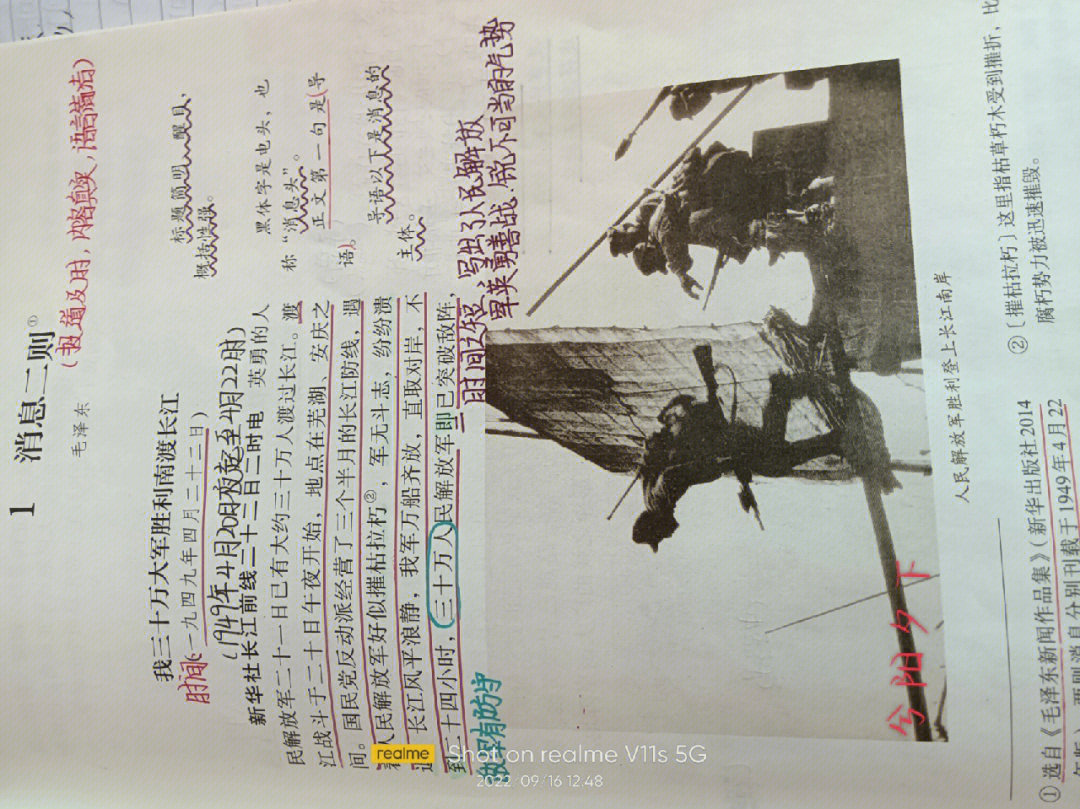 1
消息二则①
(报道及时，内容真实，语言简洁)
毛泽东
我三十万大军胜利南渡长江
时间:一九四九年四月二十二日)
(1949年4月20日夜起至4月22时)
新华社长江前线二十二日二时电 英勇的人
民解放军二十一日已有大约三十万人渡过长江。渡
江战斗于二十日午夜开始，地点在芜湖、安庆之
间。国民党反动派经营了三个半月的长江防线，遇
着人民解放军好似摧枯拉朽②，军无斗志，纷纷溃
退。长江风平浪静，我军万船齐放，直取对岸，不
到二十四小时，三十万人民解放军即已突破敌阵，
标题简明、醒目，
概括性强。
黑体字是电头，也
称“消息头”。
正文第一句是(导
语)。
导语以下是消息的
主体。
时间之短，写出了人民解放
军英勇善战、锐不可当的气势
敌军有防守
兮阳夕下
人民解放军胜利登上长江南岸
① 选自《毛泽东新闻作品集》(新华出版社2014
年版)。两则消息分别刊载于1949年4月22
②〔摧枯拉朽〕这里指枯草朽木受到摧折，比
腐朽势力被迅速摧毁。
realme
Shot on realme V11s 5G
2022/09/16 12:48